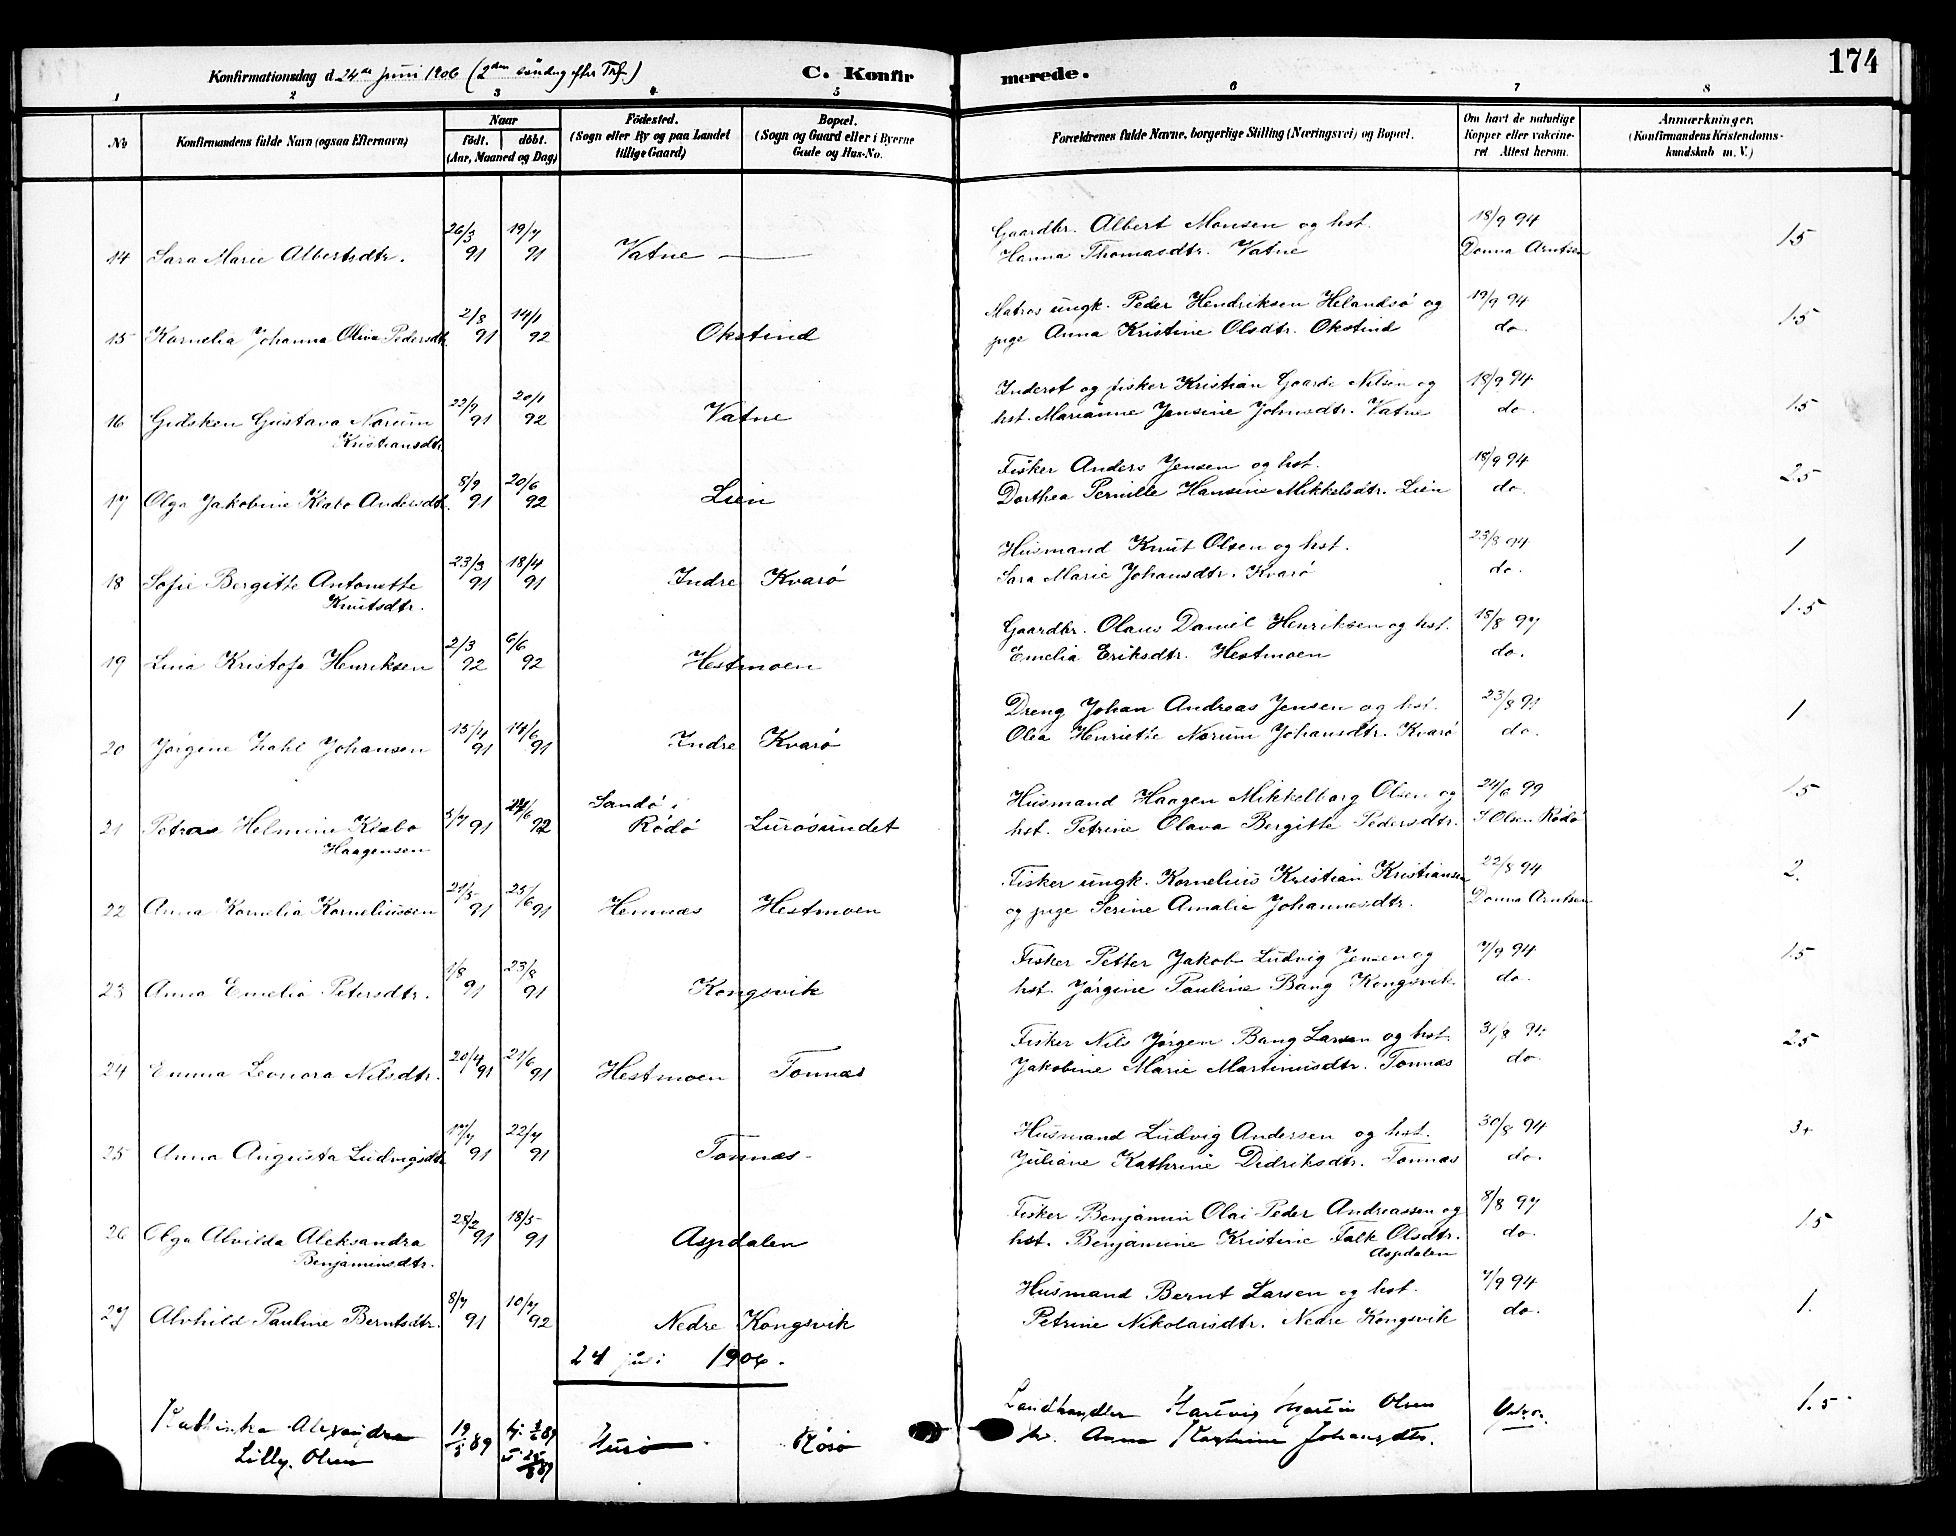 174
Konfirmationsdag d. 24de juni 1906 (2den søndag efter Trf.)
C. Konfirmerede.
1 2 3 4 5 6 7 8
No
Konfirmandens fulde Navn (ogsaa Efternavn)
Naar
født. døbt.
(Aar, Maaned og Dag)
Fødested.
(Sogn eller By og paa Landet
tillige Gaard)
Bopæl.
(Sogn og Gaard eller i Byerne
Gade og Hus-No.
Forældrenes fulde Navne, borgerlige Stilling (Næringsvei) og Bopæl.
Om havt de naturlige
Kopper eller vakcine-
ret Attest herom.
Anmærkninger.
(Konfirmandens Kristendoms-
kundskab m. V.)
14 Sara Marie Albertsdtr. 26/3 91 19/7 91 Vatne —
Gaardbr. Albert Monsen og hst.
Hanna Thomasdtr. Vatne
18/9 94
Donna Arntsen
1.5
15 Kornelia Johanna Oliva Pedersdtr. 2/8 91 14/1 92 Okstind
Matros ungk. Peder Hendriksen Helandsø og
pige Anna Kristine Olsdtr. Okstind
19/9 94
do.
1.5
16 Gidsken Gustava Norum
Kristiansdtr.
22/9 91 20/1 92 Vatne
Inderst og fisker Kristian Gaarde Nilsen og
hst. Marianne Jensine Johnsdtr. Vatne
18/9 94
do.
1.5
17 Olga Jakobine Klæbo Andersdtr. 8/9 91 20/6 92 Lien
Fisker Anders Jensen og hst.
Dorthea Pernille Hansine Mikkelsdtr. Lien
18/9 94
do.
2.5
18 Sofie Bergitte Antonette
Knutsdtr.
23/3 91 18/4 91 Indre Kvarø
Husmand Knut Olsen og hst.
Sara Marie Johansdtr. Kvarø
23/8 94
do.
1
19 Lina Kristofa Henriksen 2/3 92 6/6 92 Hestmoen
Gaardbr. Olaus Daniel Henriksen og hst.
Emelia Eriksdtr. Hestmoen
15/8 97
do.
1.5
20 Jørgine Zahl Johansen 15/4 91 14/6 91 Indre Kvarø
Dreng Johan Andreas Jensen og hst.
Olea Henriette Norum Johansdtr. Kvarø
do.
1
21 Petra Helmine Klæbo
Haagensen
5/7 91 92 Sandø i
Rødø Lurøsundet
Husmand Haagen Mikkelborg Olsen og
hst. Petrine Olava Bergitte Pedersdtr.
24/6 99
J Olsen Rødø
1.5
22 Anna Kornelia Korneliussen 21/5 91 25/6 91 Hemnæs Hestmoen
Fisker ungk. Kornelius Kristian Kristiansen
og pige Serine Amalie Johannesdtr.
22/8 94
Donna Arntsen
2.
23 Anna Emelia Petersdtr. 1/8 91 23/8 91 Kongsvik
Fisker Petter Jakob Ludvig Jensen og
hst. Jørgine Pauline Bang Kongsvik
7/9 94
do.
1.5
24 Emma Leonora Nilsdtr. 20/4 91 21/6 91 Hestmoen Tonnæs
Fisker Nils Jørgen Bang Larsen og hst.
Jakobine Marie Martinusdtr. Tonnæs
do.
2.5
25 Anna Augusta Ludvigsdtr 17/7 91 22/7 91 Tonnæs
Husmand Ludvig Andersen og hst.
Juliane Kathrine Didriksdtr. Tonnæs
30/8 94
do.
3+
26 Olga Alvilda Aleksandra
Benjaminsdtr.
28/2 91 18/5 91 Aspdalen
Fisker Benjamin Olai Peder Andreassen og
hst. Benjamine Kristine Falk Olsdtr.
Aspdalen
8/8 97
do.
1.5
27 Alvhild Pauline Berntsdtr. 8/7 91 10/7 92 Nedre Kongsvik
Husmand Bernt Larsen og hst.
Petrine Nikolaisdtr. Nedre Kongsvik
7/9 94
do.
1.
1906.
Alexandra
Lilly Olsen
89
Landhandler Hartvig Martin Olsen
Anna Johansdtr.
1.5